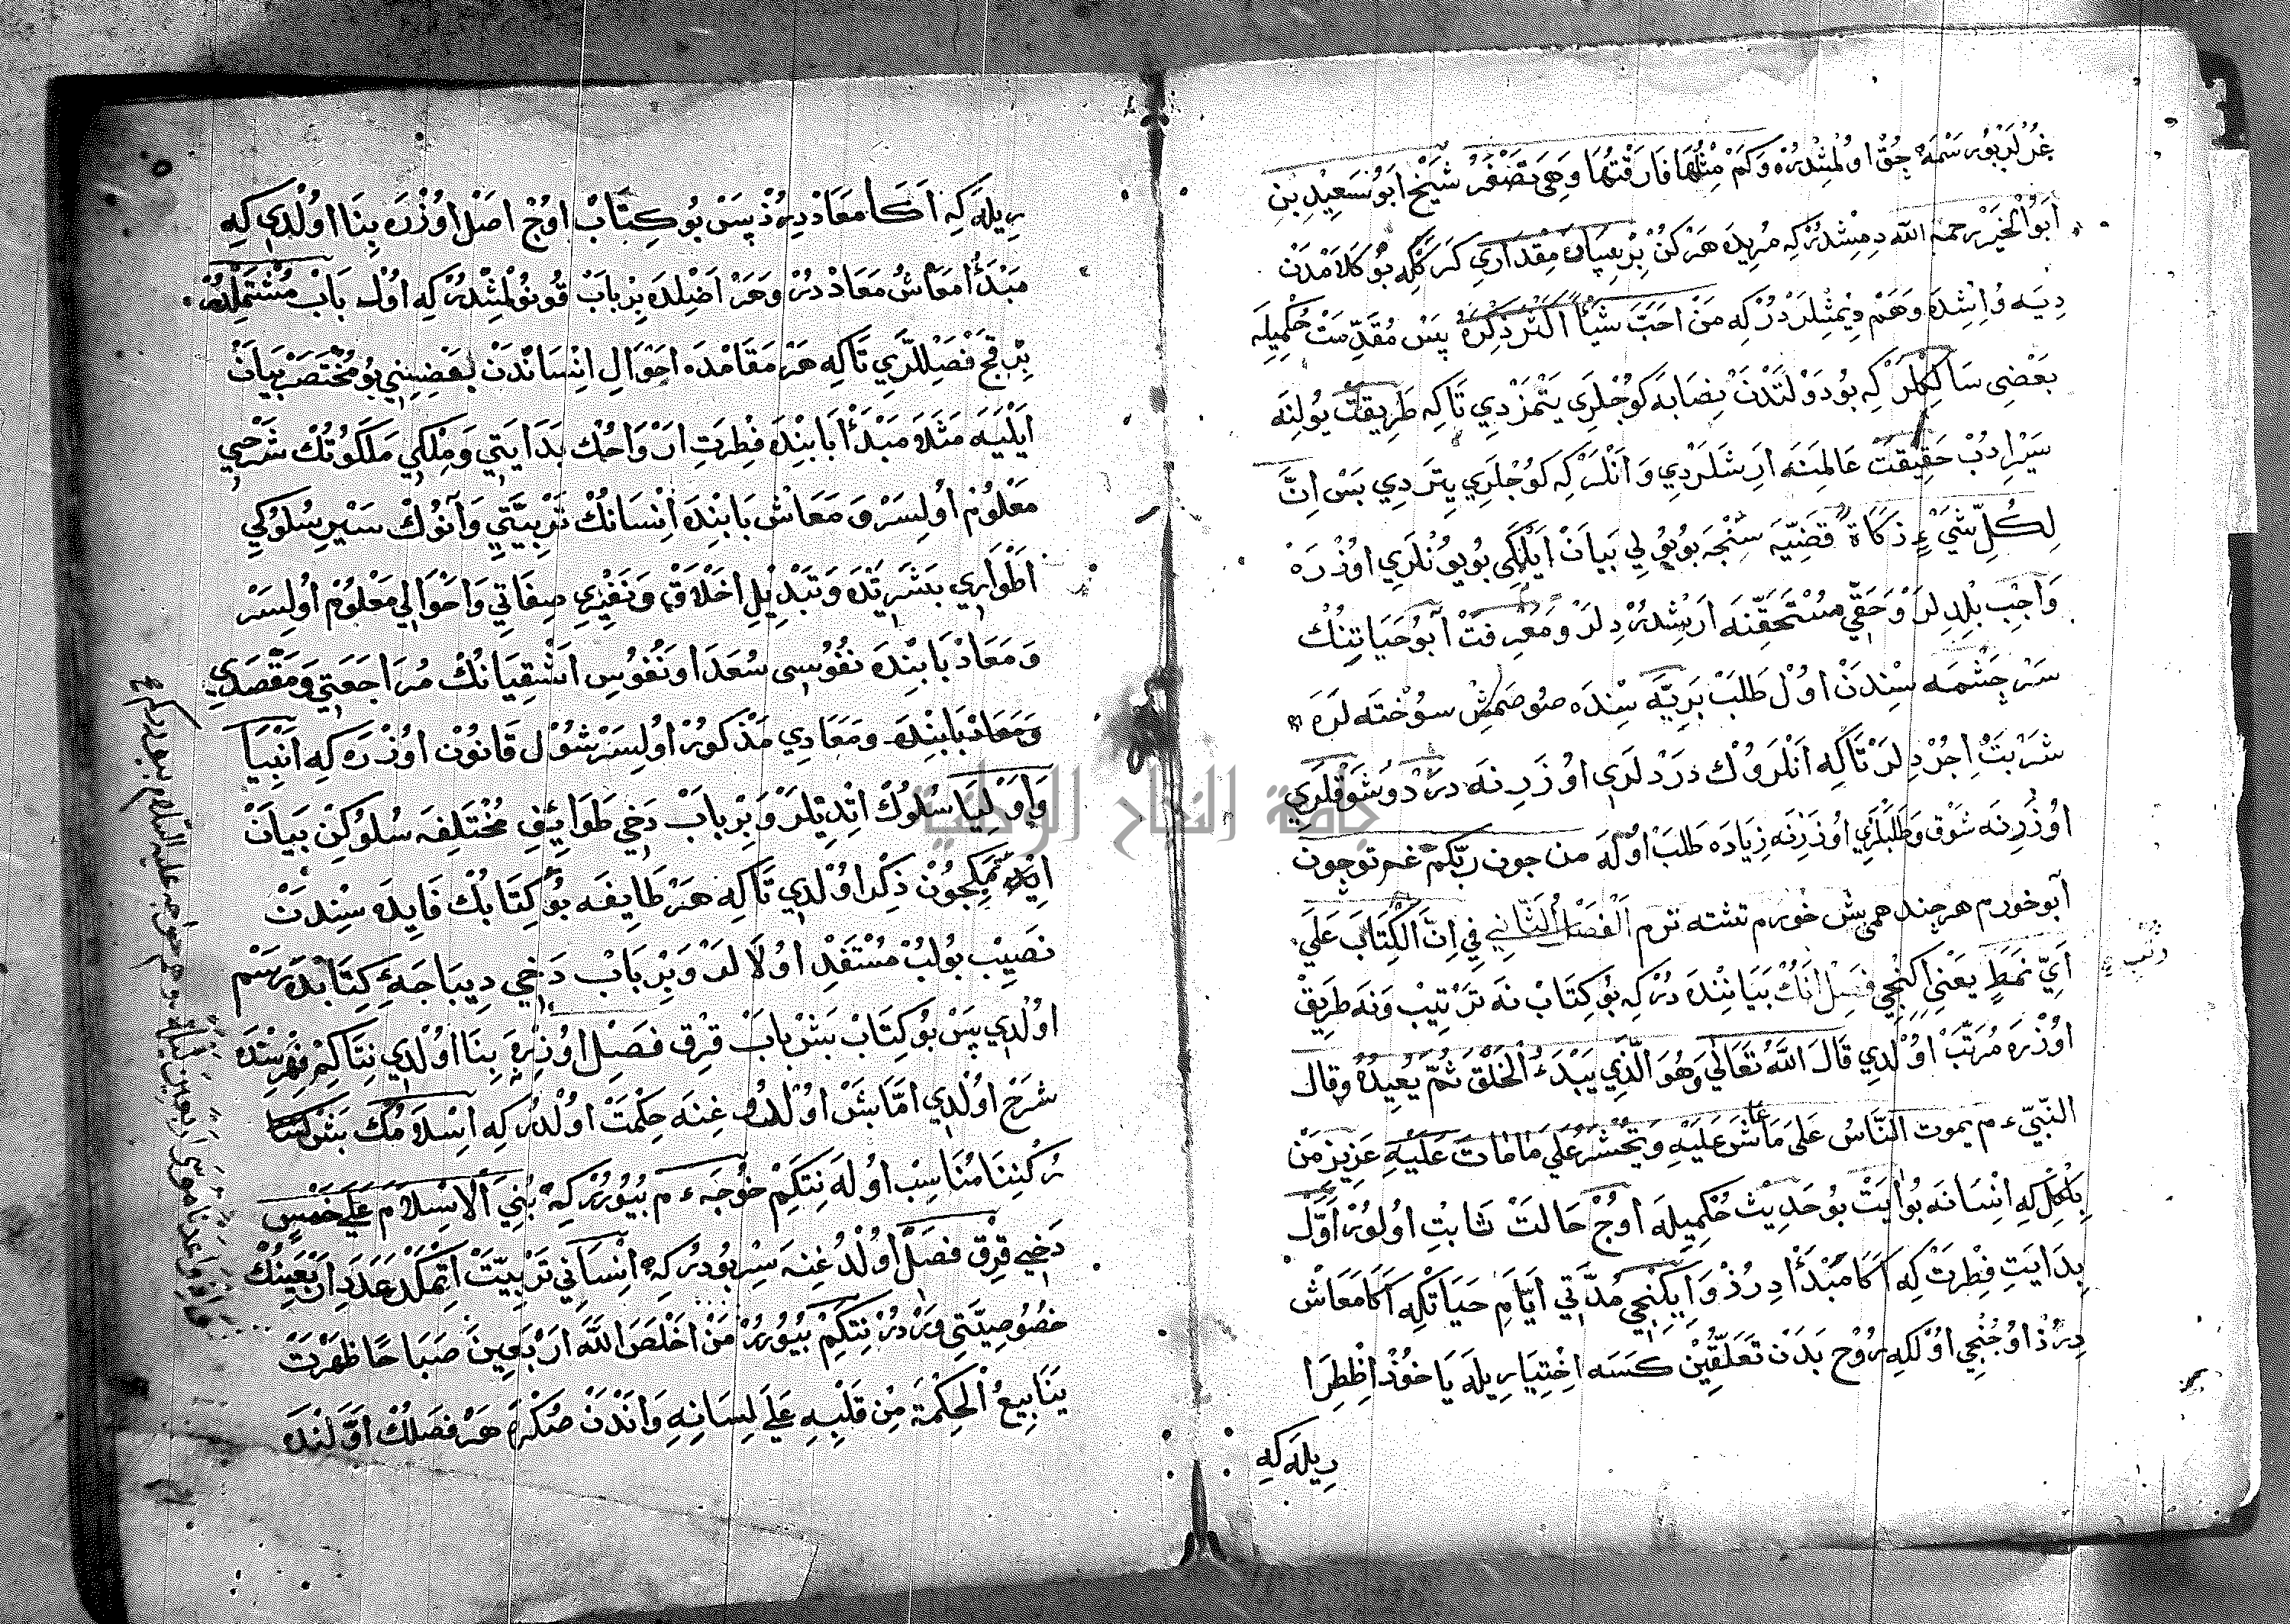 غزلر بو رسمه چق اولمشدر و كم مثلها فارقتها وهي تصفر شيخ ابو سعيد بن
ابو الخير رحمة الله دمشدر كه مريده هر كن بر سپاره مقداري كركه بو كلامدن
ديه و اشده وهم ديمشلردر كه من احب شيأ اكثر ذكره پس مقدمت حكميله
بعضي سالكلر كه بو دولتدن نصابه كوجلري يتمزدي تا كه طريقت يولنه
سير ادب حقيقت عالمنه ارشلردي و انلر كه كوجلري يتردي بس ان
لكل شيء زكاة قضية سنجه بو يولي بيان ايلمكي بو يونلري اوزره
واجب بلديلر و حقي مستحقنه ارشدرديلر و معرفت آبو حياتنك
سر چشمه سندن اول طلب برية سنده صوصمش سوخته لره
شربت اجرديلر تا كه انلروك دردلري اوزرنه درد و شوقلري
اوزرنه شوق و طلبلري اوزرنه زياده طلب اوله من جون ربكم غم توجون
آبو خورم هر چند همي پش خورم تشنه ترم الفصل الثاني في ان الكتاب علي
اي نمط يعني اكنجي فصل انك بيانندہ در كه بو كتاب نه ترتيب و نه طريق
اوزره مرتب اولدي قال الله تعالي وهو الذي يبدء الخلق ثم يعيده وقال
النبي ء م يموت الناس علي ما عاش عليه و يحشر علي ما مات عليه عزيز من
بلكل كه انسانه بو ايت بو حديث حكميله اوچ حالت ثابت اولور اول
بدايت فطرت كه اكا مبدأ درذ و ايكنجي مدتي ايام حياتكه اكا معاش
درذ اوجنجي اولكه روح بدن تعلقين كسه اختيار يله يا خوذ اظطرا
ريله كه
ريله كه اكا معاد درذ پس بو كتاب اوچ اصل اوزره بنا اولدي كه
مبدأ معاش معاد در و هر اصلده بر باب قونولمشدر كه اول باب مشتملدر
بر قچ فصللري تا كه هر مقامده احوال انساندن بعضيني بو مختصر بيان
ايليه مثلا مبدأ بابنده فطرت ارواحك بدايتي و ملكي ملكوتك شرحي
معلوم اوليسر و معاش بابنده انسانك تربيتي و آنوك سير سلوكي
اطواري بشريتده و تبديل اخلاق و تغيري صفاتي و احوالي معلوم اوليسر
و معاد بابنده نفوسي سعدا و نفوس اشقيانك مراجعتي و مقصدي
و معاد بابنده و معادي مذكور اوليسر شول قانون اوزره كه انبيا
و اوليا سلوك اتديلر و بر باب دخي طوايف مختلفه سلوكن بيان
اتمكيجون ذكر اولدي تا كه هر طايفه بو كتابك فايده سندن
نصيب بولب مستفذ اولالر و بر باب دخي ديباجه ء كتابده رسم
اولدي پس بو كتاب بش باب قرق فصل اوزره بنا اولدي نتا كم فهرستده
شرح اولدي اما بش اولدوغنه حكمت اولدر كه اسلامك بش
ركننا مناسب اوله نتكم خوجه ء م بيورر كه بني الاسلام علي خمس
دخي قرق فصل اولدغنه سر بودر كه انساني تربيت اتمكلده عدد اربعينك
خصوصيتي وردر نتكم بيورر من اخلص الله اربعين صباحا ظهرت
ينابيع الحكمة من قلبه علي لسانه و اندن صكره هر فصلك اولنده
جامعة النجاح الوطنية